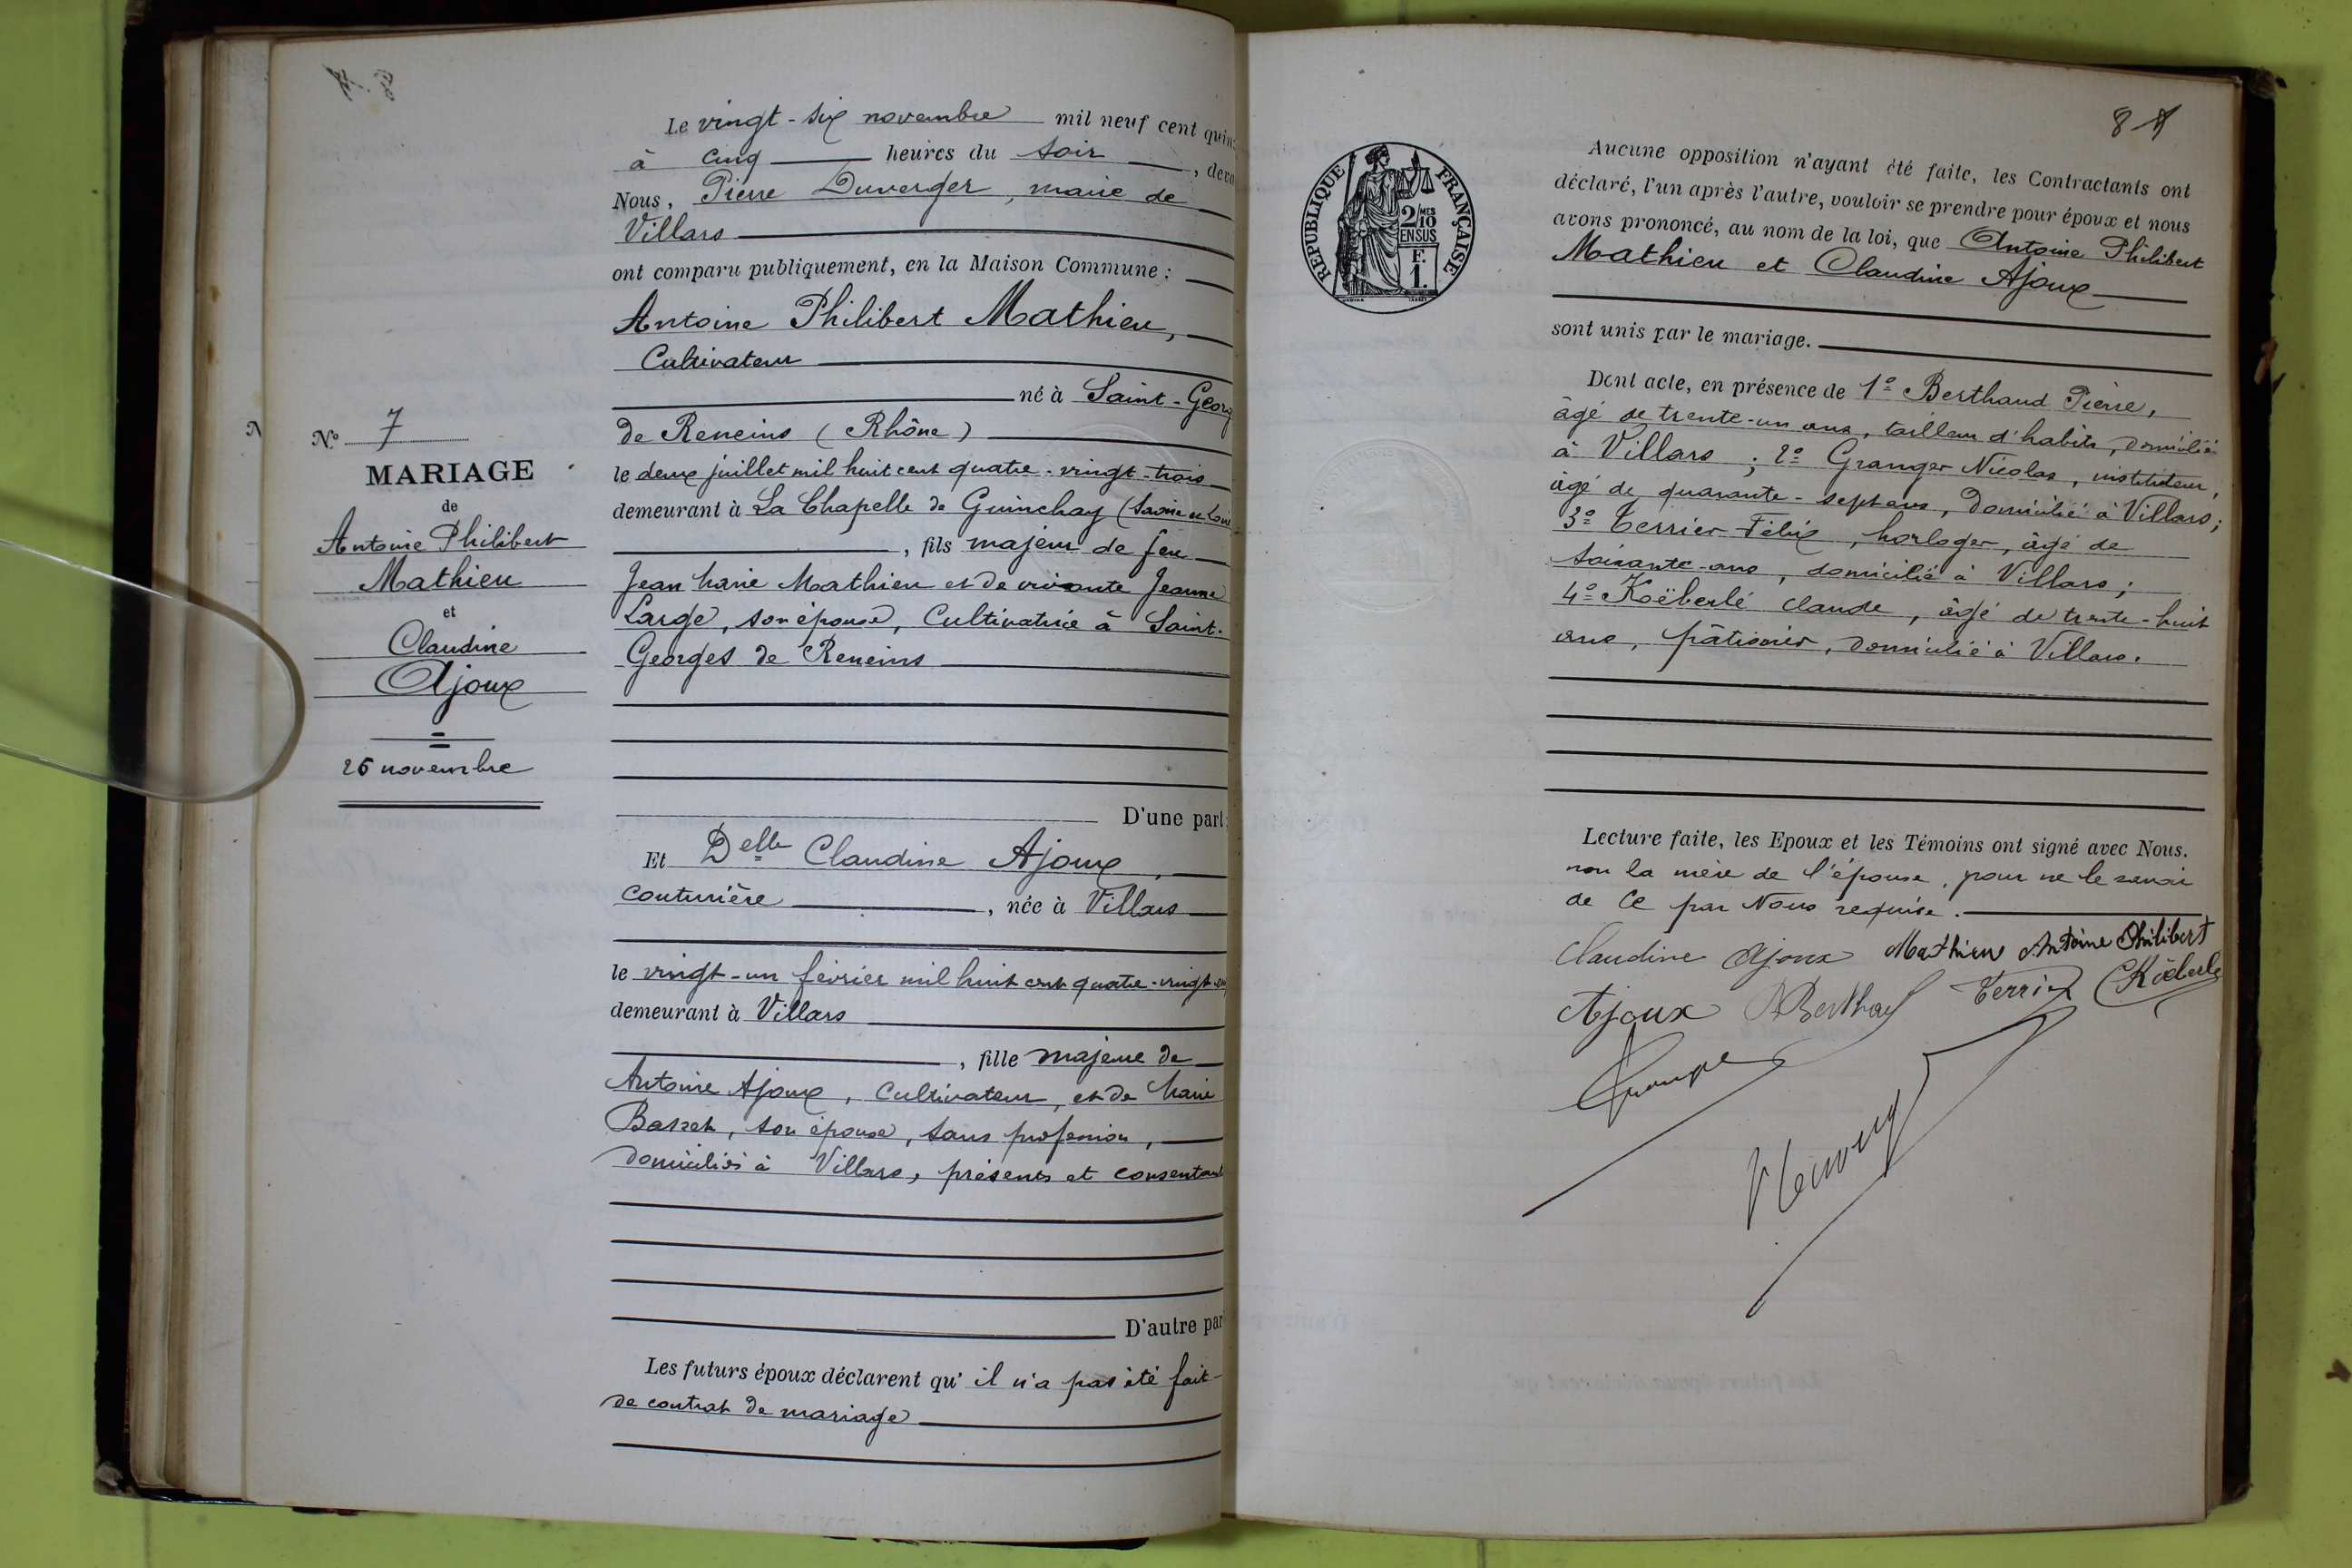 Le vingt-six novembre mil neuf cent quin
à cinq heures du soir, deva
Nous, Pierre Duverger, maire de
Villars
ont comparu publiquement, en la Maison Commune :
Antoine Philibert Mathieu,
Cultivateur
né à Saint-Georg
de Reneins (Rhône)
le deux juillet mil huit cent quatre-vingt-trois
demeurant à La Chapelle de Guinchay (Saône et Loire
, fils majeur de feu
Jean Marie Mathieu et de vivante Jeanne
Large, son épouse, Cultivatrice à Saint-
Georges de Reneins
D'une part;
Et Delle Claudine Ajoux,
couturière, née à Villars
le vingt-un février mil huit cent quatre-vingt-
demeurant à Villars
, fille majeure de
Antoine Ajoux, Cultivateur, et de Marie
Basset, son épouse, sans profession,
domiciliés à Villars, présents et consentant
D'autre par
Les futurs époux déclarent qu' il n'a pas été fait
de contrat de mariage
N° 7
MARIAGE
de
Antoine Philibert
Mathieu
et
Claudine
Ajoux
26 novembre
8
RÉPUBLIQUE FRANÇAISE
2/10 MES
EN SUS
F.
1.
Aucune opposition n'ayant été faite, les Contractants ont
déclaré, l'un après l'autre, vouloir se prendre pour époux et nous
avons prononcé, au nom de la loi, que Antoine Philibert
Mathieu et Claudine Ajoux
sont unis par le mariage.
Dont acte, en présence de 1° Berthaud Pierre,
âgé de trente-un ans, tailleur d'habits, domicilié
à Villars ; 2° Granger Nicolas, instituteur,
âgé de quarante-sept ans, domicilié à Villars;
3° Terrier Félix, horloger, âgé de
soixante-ans, domicilié à Villars ;
4° Koëberlé Claude, âgé de trente-huit
ans, pâtissier, domicilié à Villars.
Lecture faite, les Epoux et les Témoins ont signé avec Nous.
non la mère de l'épouse, pour ne le savoir
de ce par Nous requise.
Claudine Ajoux Mathieu Antoine Philibert
Ajoux Berthaud Terrier C Köeberlé